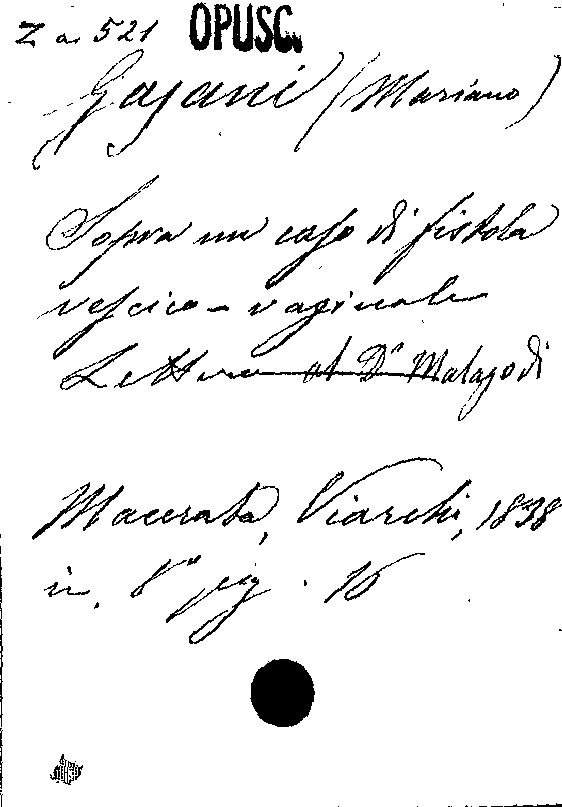 Z a. 521 OPUSC.
Gajani (Mariano)
Sopra un caso di fistola
vescico-vaginale
Lettera al Dr Malagodi
Macerata, Viarchi, 1838
in 8º pag. 16